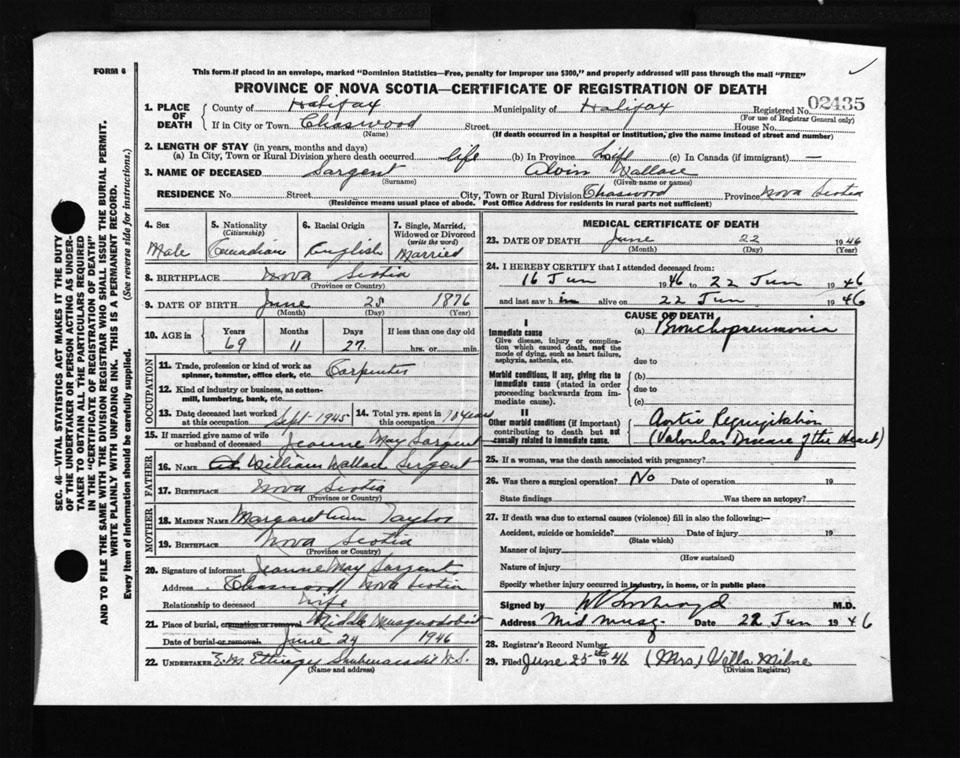 FORM 6
This form if placed in an envelope, marked "Dominion Statistics—Free, penalty for improper use $300," and properly addressed will pass through the mail "FREE"
PROVINCE OF NOVA SCOTIA—CERTIFICATE OF REGISTRATION OF DEATH
1. PLACE OF DEATH County of Halifax Municipality of Halifax Registered No. 02435
(For use of Registrar General only)
If in City or Town Chaswood Street House No.
(Name) (If death occurred in a hospital or institution, give the name instead of street and number)
2. LENGTH OF STAY (in years, months and days)
(a) In City, Town or Rural Division where death occurred life (b) In Province Life (c) In Canada (if immigrant) —
3. NAME OF DECEASED Sargent Alvin Wallace
(Surname) (Given name or names)
RESIDENCE No. Street City, Town or Rural Division Chaswood Province Nova Scotia
(Residence means usual place of abode. Post Office Address for residents in rural parts not sufficient)
4. Sex Male
5. Nationality (Citizenship) Canadian
6. Racial Origin English
7. Single, Married, Widowed or Divorced (write the word) Married
8. BIRTHPLACE Nova Scotia
(Province or Country)
9. DATE OF BIRTH June 25 1876
(Month) (Day) (Year)
10. AGE in Years Months Days If less than one day old
69 11 27 hrs. or min.
OCCUPATION
11. Trade, profession or kind of work as spinner, teamster, office clerk, etc. Carpenter
12. Kind of industry or business, as cotton-mill, lumbering, bank, etc.
13. Date deceased last worked at this occupation Sept-1945
14. Total yrs. spent in this occupation years
15. If married give name of wife or husband of deceased Jeanne May Sargent
FATHER
16. NAME William Wallace Sargent
17. BIRTHPLACE Nova Scotia
(Province or Country)
MOTHER
18. MAIDEN NAME Margaret Ann Taylor
19. BIRTHPLACE Nova Scotia
(Province or Country)
20. Signature of informant Jeanne May Sargent
Address Chaswood, Nova Scotia
Relationship to deceased Wife
21. Place of burial, cremation or removal Middle Musquodoboit
Date of burial or removal June 24 1946
22. UNDERTAKER Shubenacadie N.S.
(Name and address)
MEDICAL CERTIFICATE OF DEATH
23. DATE OF DEATH June 22 1946
(Month) (Day)
24. I HEREBY CERTIFY that I attended deceased from:
16 Jun 1946 to 22 Jun 1946
and last saw him alive on 22 Jun 1946
CAUSE OF DEATH
I
Immediate cause (a) Bronchopneumonia
Give disease, injury or complication which caused death, not the mode of dying, such as heart failure, asphyxia, asthenia, etc.
due to
Morbid conditions, if any, giving rise to immediate cause (stated in order proceeding backwards from immediate cause).
(b)
due to
(c)
II
Other morbid conditions (if important) contributing to death but not causally related to immediate cause.
Aortic Regurgitation
(Valvular Disease of the Heart)
25. If a woman, was the death associated with pregnancy?
26. Was there a surgical operation? No Date of operation 19
State findings Was there an autopsy?
27. If death was due to external causes (violence) fill in also the following:—
Accident, suicide or homicide? Date of injury 19
(State which)
Manner of injury
(How sustained)
Nature of injury
Specify whether injury occurred in industry, in home, or in public place
Signed by M.D.
Address Mid Musq. Date 22 Jun 1946
28. Registrar's Record Number
29. Filed June 25th 1946 (Mrs) Vella Milne
(Division Registrar)
SEC. 46—VITAL STATISTICS ACT MAKES IT THE DUTY
OF THE UNDERTAKER OR PERSON ACTING AS UNDER-
TAKER TO OBTAIN ALL THE PARTICULARS REQUIRED
IN THE "CERTIFICATE OF REGISTRATION OF DEATH"
AND TO FILE THE SAME WITH THE DIVISION REGISTRAR WHO SHALL ISSUE THE BURIAL PERMIT.
WRITE PLAINLY WITH UNFADING INK. THIS IS A PERMANENT RECORD.
Every item of information should be carefully supplied. (See reverse side for instructions.)